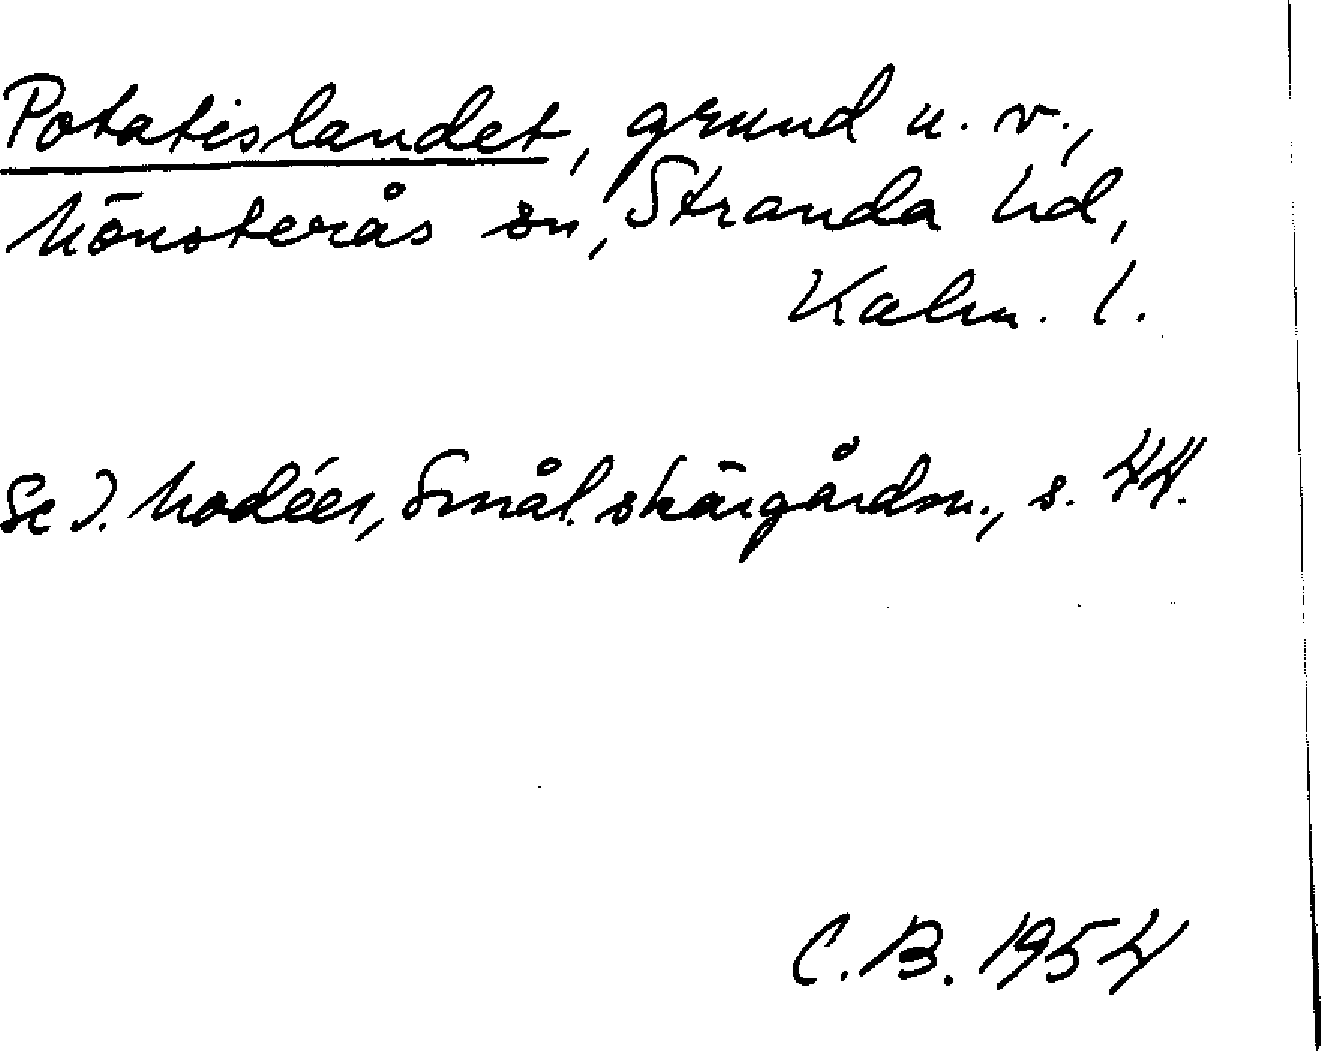 Potatislandet, grund u. v.,
Mönsterås sn, Stranda hd,
Kalm. l.
Se I. Modéer, Smål. skärgårdsn., s. 44.
C. B. 1954